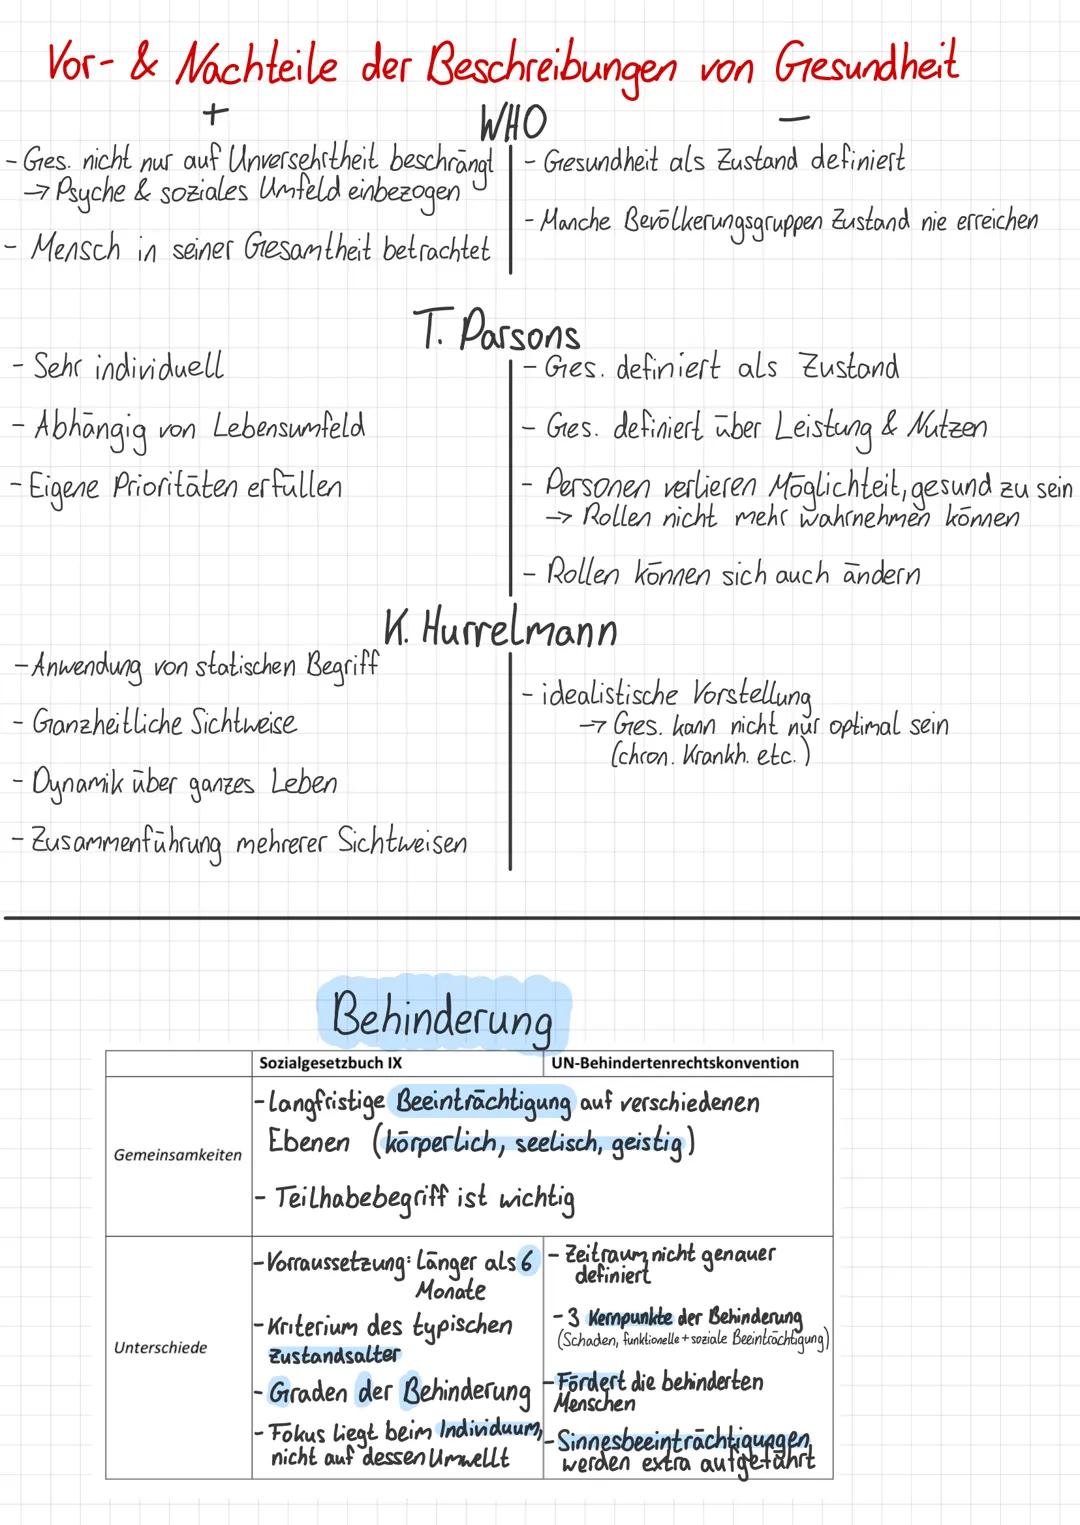 Vor- & Nachteile der Beschreibungen von Gesundheit
+
WHO
-
- Ges. nicht nur auf Unversehrtheit beschrängt
→ Psyche & soziales Umfeld einbezogen
- Mensch in seiner Gesamtheit betrachtet
- Gesundheit als Zustand definiert
- Manche Bevölkerungsgruppen Zustand nie erreichen
T. Parsons
- Sehr individuell
- Abhängig von Lebensumfeld
- Eigene Prioritäten erfüllen
- Ges. definiert als Zustand
- Ges. definiert über Leistung & Nutzen
- Personen verlieren Möglichteit, gesund zu sein
→ Rollen nicht mehr wahrnehmen können
- Rollen können sich auch ändern
K. Hurrelmann
- Anwendung von statischen Begriff
- Ganzheitliche Sichtweise
- Dynamik über ganzes Leben
- Zusammenführung mehrerer Sichtweisen
- idealistische Vorstellung
→ Ges. kann nicht nur optimal sein
(chron. Krankh. etc.)
Behinderung
Sozialgesetzbuch IX
UN-Behindertenrechtskonvention
Gemeinsamkeiten
- Langfristige Beeinträchtigung auf verschiedenen
Ebenen (körperlich, seelisch, geistig)
- Teilhabebegriff ist wichtig
Unterschiede
- Vorraussetzung: Länger als 6
Monate
- Kriterium des typischen
Zustandsalter
- Graden der Behinderung
- Fokus liegt beim Individuum,
nicht auf dessen Umwellt
- Zeitraum nicht genauer
definiert
- 3 Kernpunkte der Behinderung
(Schaden, funktionelle + soziale Beeinträchtigung)
- Fördert die behinderten
Menschen
- Sinnesbeeinträchtigungen
werden extra aufgeführt